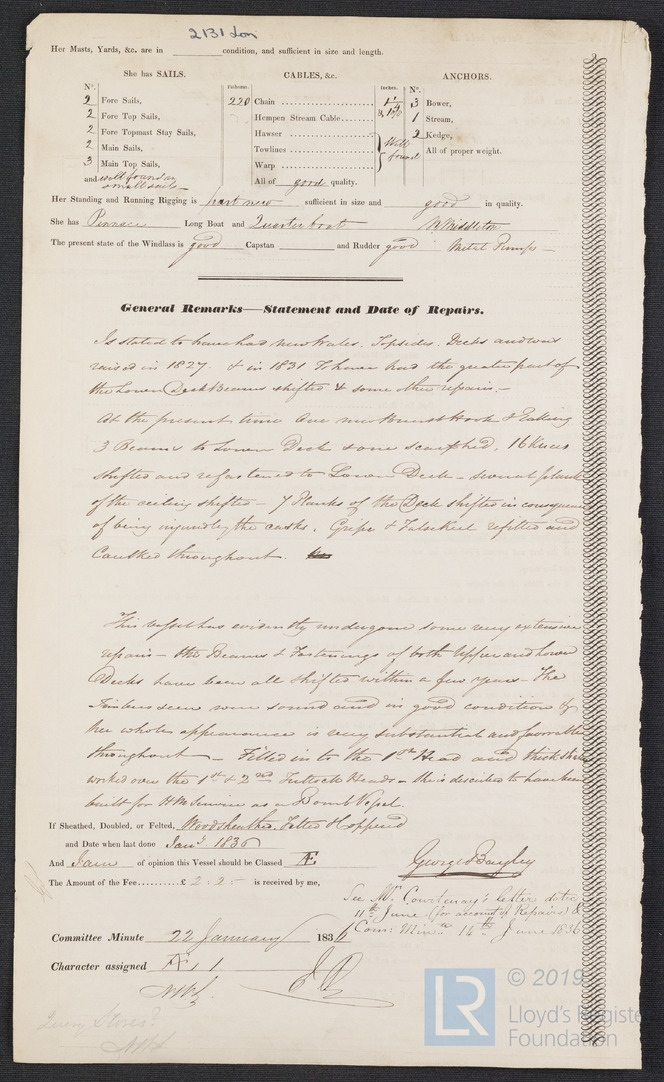 2131 Lon
Her Masts, Yards, &c. are in condition, and sufficient in size and length.
She has SAILS.
CABLES, &c.
ANCHORS.
N°.
Fathoms.
Inches.
N°.
2 Fore Sails,
220 Chain
3 Bower,
2 Fore Top Sails,
Hempen Stream Cable
1 Stream,
2 Fore Topmast Stay Sails,
Hawser
2 Kedge,
2 Main Sails,
Towlines
Well found
All of proper weight.
3 Main Top Sails,
Warp
and well found in small sails
All of good quality.
Her Standing and Running Rigging is part new sufficient in size and good in quality.
She has Pinnace Long Boat and Quarter boat W Middleton
The present state of the Windlass is good Capstan and Rudder good Metal Pumps
General Remarks—Statement and Date of Repairs.
Is stated to have had new Wales, Topsides, Decks and was
raised in 1827. & in 1831 To have had the greater part of
the Lower Deck Beams shifted & some other repairs.
At the present time One new Breast Hook &
3 Beams to Lower Deck some scarphed, 16 Knees
shifted and refastened to Lower Deck – several planks
of the ceiling shifted – 7 Planks of the Deck shifted in consequence
of being injured by the casks. Gripe & False Keel refitted and
Caulked throughout.
This vessel has evidently undergone some very extensive
repairs – the Beams & Fastenings of both Upper and Lower
Decks have been all shifted within a few years – The
Timbers seen were sound and in good condition &
her whole appearance is very substantial and favorable
throughout – Filled in to the 1st Head and thick
worked over the 1st & 2nd Futtock Heads – this described to have been
built for HM Service as a Bomb Vessel.
If Sheathed, Doubled, or Felted, Woodsheathed Felted & Coppered
and Date when last done Jany 1836
And I am of opinion this Vessel should be Classed Æ
George Bayley
The Amount of the Fee £ 2: 2: is received by me,
See Mr. Courtenay's letter dated
11th June (for account of Repairs) &
Com: Minte 14th June 1836
Committee Minute 22 January 1836
Character assigned Æ 1
© 2019
LR
Lloyd's Register
Foundation
Stores?